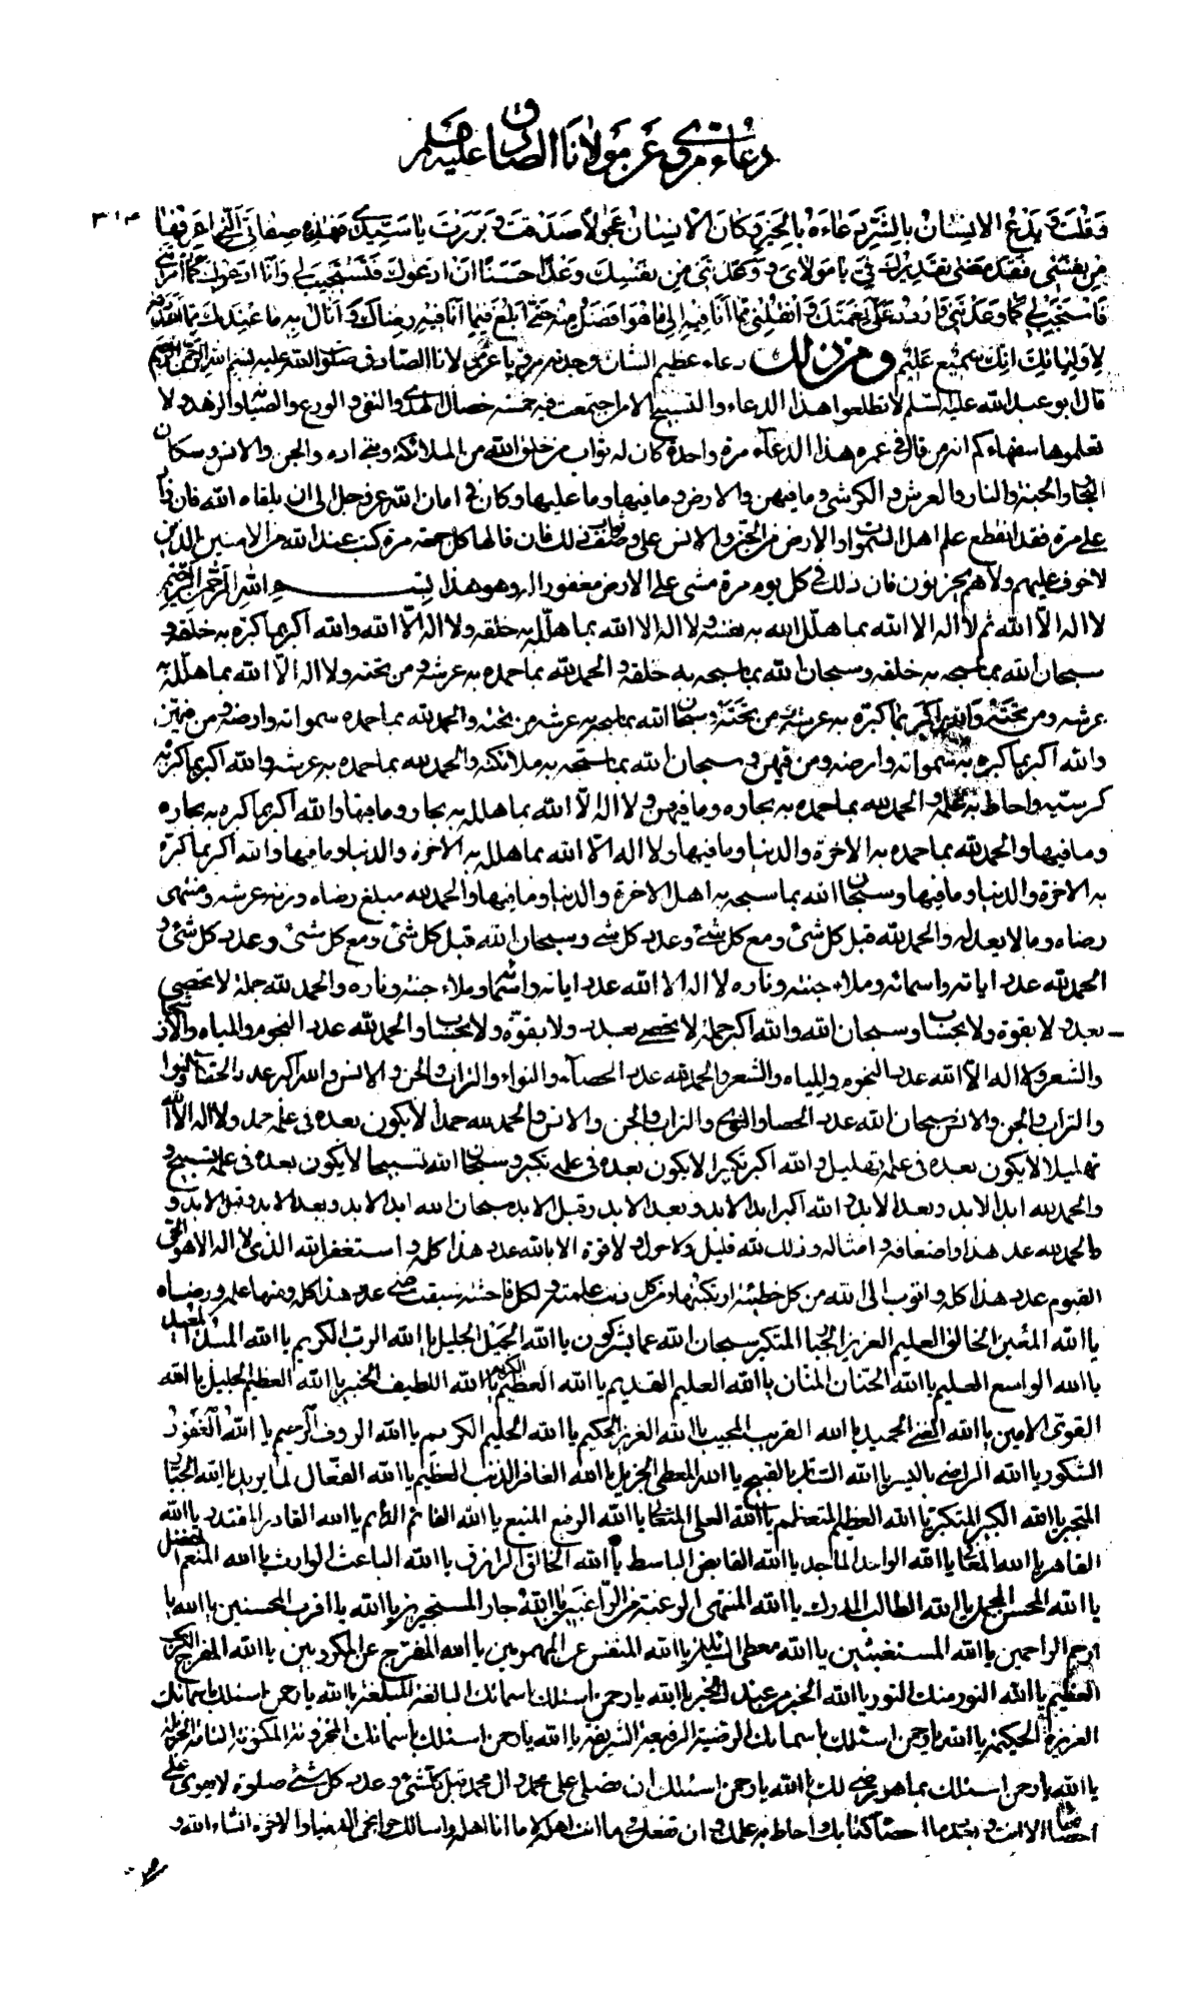 دعاء مروي عن مولانا الصادق عليه السلم
٣١٤
وقلت ويدع الانسان بالشر دعاءه بالخير وكان الانسان عجولا صدقت وبررت يا سيدي فهذه صفاتي التي اعرفها
من نفسي قد مضى تقديرك في يا مولاي ووعدتني من نفسك وعدا حسنا ان ادعوك فتستجيب لي وانا ادعوك كما امرتني
فاستجب لي كما وعدتني واردد علي نعمتك وانقلني مما انا فيه الى ما هو افضل منه حتى ابلغ فيما انا فيه رضاك وانال به ما عندك مما اعددته
لاوليائك انك سميع عليم ومن ذلك دعاء عظيم الشان وجدته مرويا عن مولانا الصادق صلوات الله عليه بسم الله الرحمن الرحيم
قال ابو عبد الله عليه السلم لا تطلعوا هذا الدعاء والتسبيح الا من اجتمعت فيه خمسة خصال الهدى والتقى والورع والصيانة والزهد ولا
تعلموها سفهاءكم انه من قال في عمره هذا الدعاء مرة واحدة كان له ثواب من خلق الله من الملائكة وبني ادم والجن والانس وسكان
البحار والجنة والنار والعرش والكرسي وما فيهن والارض وما فيها وما عليها وكان في امان الله عز وجل الى ان يلقاه الله فان زاد
على مرة فقد انقطع علم اهل السموات والارض من الجن والانس على وصف ثواب ذلك فان قالها كل جمعة مرة كتب عند الله من الامنين الذين
لا خوف عليهم ولا هم يحزنون فان ذلك في كل يوم مرة مشى على الارض مغفورا له وهو هذا بسم الله الرحمن الرحيم
لا اله الا الله ثم لا اله الا الله بما هلل الله به نفسه ولا اله الا الله بما هلل به خلقه ولا اله الا الله والله اكبر بما كبره به خلقه و
سبحان الله بما سبحه به خلقه وسبحان الله بما سبحه به خلقه والحمد لله بما حمده به عرشه ومن تحته ولا اله الا الله بما هلله به
عرشه ومن تحته والله اكبر بما كبره به عرشه ومن تحته وسبحان الله بما سبحه به عرشه من تحته والحمد لله بما حمده سمواته وارضه ومن فيهن
والله اكبر بما كبره به سمواته وارضه ومن فيهن وسبحان الله بما سبحه به ملائكته والحمد لله بما حمده به عرشه والله اكبر بما كبره به
كرسيه واحاط به علمه والحمد لله بما حمده به بحاره وما فيهن ولا اله الا الله بما هلل به بحاره وما فيها والله اكبر بما كبره به بحاره
وما فيها والحمد لله بما حمده به الاخرة والدنيا وما فيها ولا اله الا الله بما هلل به الاخرة والدنيا وما فيها والله اكبر بما كبره
به الاخرة والدنيا وما فيها وسبحان الله بما سبحه به اهل الاخرة والدنيا وما فيها والحمد لله مبلغ رضاه وزنة عرشه ومنتهى
رضاه وما لا يعدله والحمد لله قبل كل شئ ومع كل شئ وعدد كل شئ وسبحان الله قبل كل شئ ومع كل شئ وعدد كل شئ و
الحمد لله عدد اياته واسمائه وملاء جنته وناره لا اله الا الله عدد اياته واسمائه وملاء جنته وناره والحمد لله جملة لا تحصى
بعدد لا بقوة ولا بحساب وسبحان الله والله اكبر جملة لا تحصى بعدد ولا بقوة ولا بحساب والحمد لله عدد النجوم والمياه والاشجار
والشعر ولا اله الا الله عدد النجوم والمياه والشعر والحمد لله عدد الحصاء والنواء والتراب والجن والانس والله اكبر عدد الحصا والنوا
والتراب والجن والانس سبحان الله عدد الحصا والنوى والتراب والجن والانس والحمد لله حمدا لا يكون بعده في علمه حمد ولا اله الا الله
تهليلا لا يكون بعده في علمه تهليل والله اكبر تكبيرا لا يكون بعده في علمه تكبير وسبحان الله تسبيحا لا يكون بعده في علمه تسبيح و
والحمد لله ابد الابد وبعد الابد والله اكبر ابد الابد وبعد الابد وقبل الابد سبحان الله ابد الابد وبعد الابد وقبل الابد و
والحمد لله عدد هذا واضعافه وامثاله وذلك لله قليل ولا حول ولا قوة الا بالله عدد هذا كله واستغفر الله الذي لا اله الا هو الحي
القيوم عدد هذا كله واتوب الى الله من كل خطيئة ارتكبتها ومن كل ذنب علمته ولكل فاحشة سبقت مني عدد هذا كله ومنتها علمه ورضاه
يا الله المؤمن الخالق العليم العزيز الجبار المتكبر سبحان الله عما يشركون يا الله الجميل الجليل يا الله الرب الكريم يا الله المبدئ المعيد
يا الله الواسع العليم يا الله الحنان المنان يا الله العليم القديم يا الله العظيم الكريم يا الله اللطيف الخبير يا الله العظيم الجليل يا الله
القوي الامين يا الله الغني الحميد يا الله القريب المجيب يا الله العزيز الحكيم يا الله الحليم الكريم يا الله الروف الرحيم يا الله الغفور
الشكور يا الله الراضي باليسير يا الله الساتر بالقبيح يا الله المعطي الجزيل يا الله الغافر الذنب العظيم يا الله الفعال لما يريد يا الله الجبار
المتجبر يا الله الكبير المتكبر يا الله العظيم المتعظم يا الله العلي المتعالي يا الله الرفيع المنيع يا الله القائم الدائم يا الله القادر المقتدر يا الله
القاهر يا الله المعافي يا الله الواحد الماجد يا الله القابض الباسط يا الله الخالق الرازق يا الله الباعث الوارث يا الله المنعم المفضل
يا الله المحسن المجمل يا الله الطالب المدرك يا الله المنتهى الرغبة من الراغبين يا الله جار المستجيرين يا الله يا اقرب المحسنين يا الله يا
ارحم الراحمين يا الله المستغيثين يا الله معطي السائلين يا الله المنفس عن المهمومين يا الله المفرج عن المكروبين يا الله المفرج الكرب
العظيم يا الله النور منك النور يا الله الخير من عندك الخير يا الله يا رحمن اسئلك باسمائك البالغة المبلغة يا الله يا رحمن اسئلك باسمائك
العزيزة الحكيمة يا الله يا رحمن اسئلك باسمائك الرضية الرفيعة الشريفة يا الله يا رحمن اسئلك باسمائك المخزونة المكنونة التامة الجزيلة
يا الله يا رحمن اسئلك بما هو رضى لك يا الله يا رحمن اسئلك ان تصلي على محمد وال محمد قبل كل شئ وعدد كل شئ صلوة لا يقوى على
احصائها الا انت وبعدد ما احصاه كتابك واحاط به علمك وان تفعل بي ما انت اهله لا ما انا اهله واسالك حوائجي للدنيا والاخرة انشاء الله و